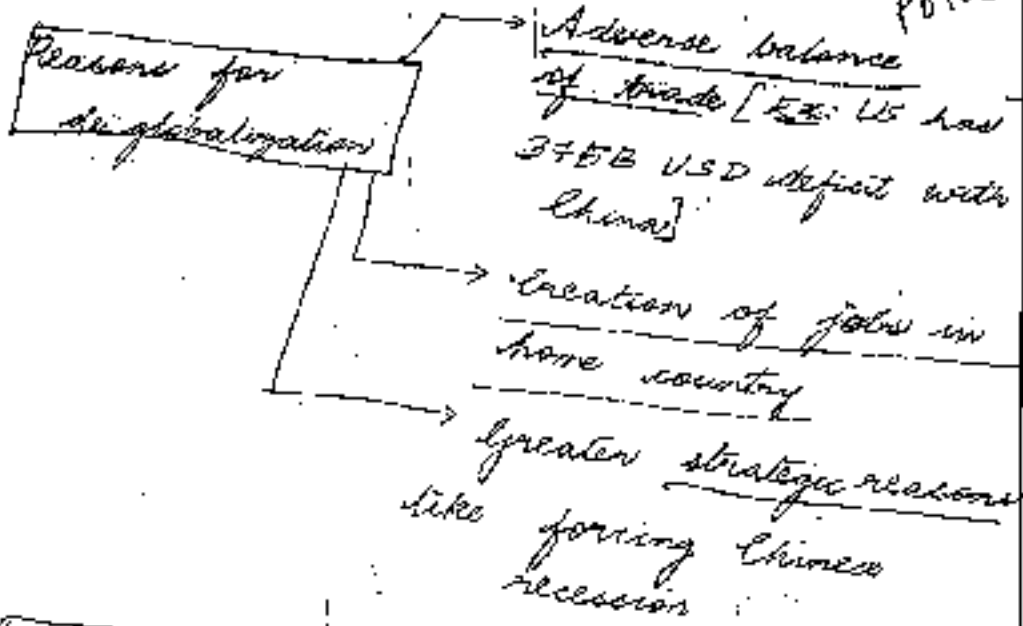 Reasons for
deglobalization
Adverse balance
of trade [Ex: US has
375B USD deficit with
China]
Creation of jobs in
home country
Greater strategic reasons
like forcing Chinese
recession